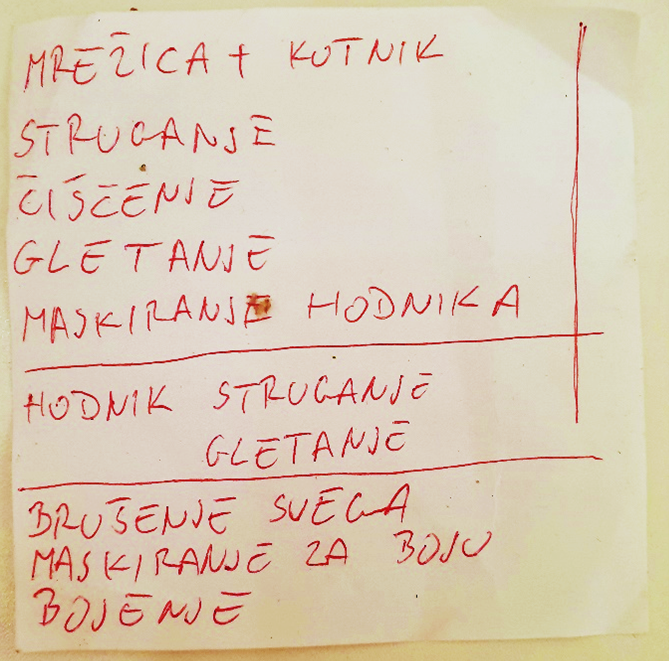 MREŽICA + KUTNIK
STRUGANJE
ČIŠĆENJE
GLETANJE
MASKIRANJE HODNIKA
HODNIK STRUGANJE
GLETANJE
BRUŠENJE SVEGA
MASKIRANJE ZA BOJU
BOJENJE